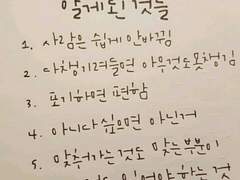 알게된 것들
1. 사람은 쉽게 안바뀜
2. 다챙기려들면 아무것도못챙김
3. 포기하면 편함
4. 아니다 싶으면 아닌거
5. 맞춰가는것도 맞는부분이
있어야 하는 것